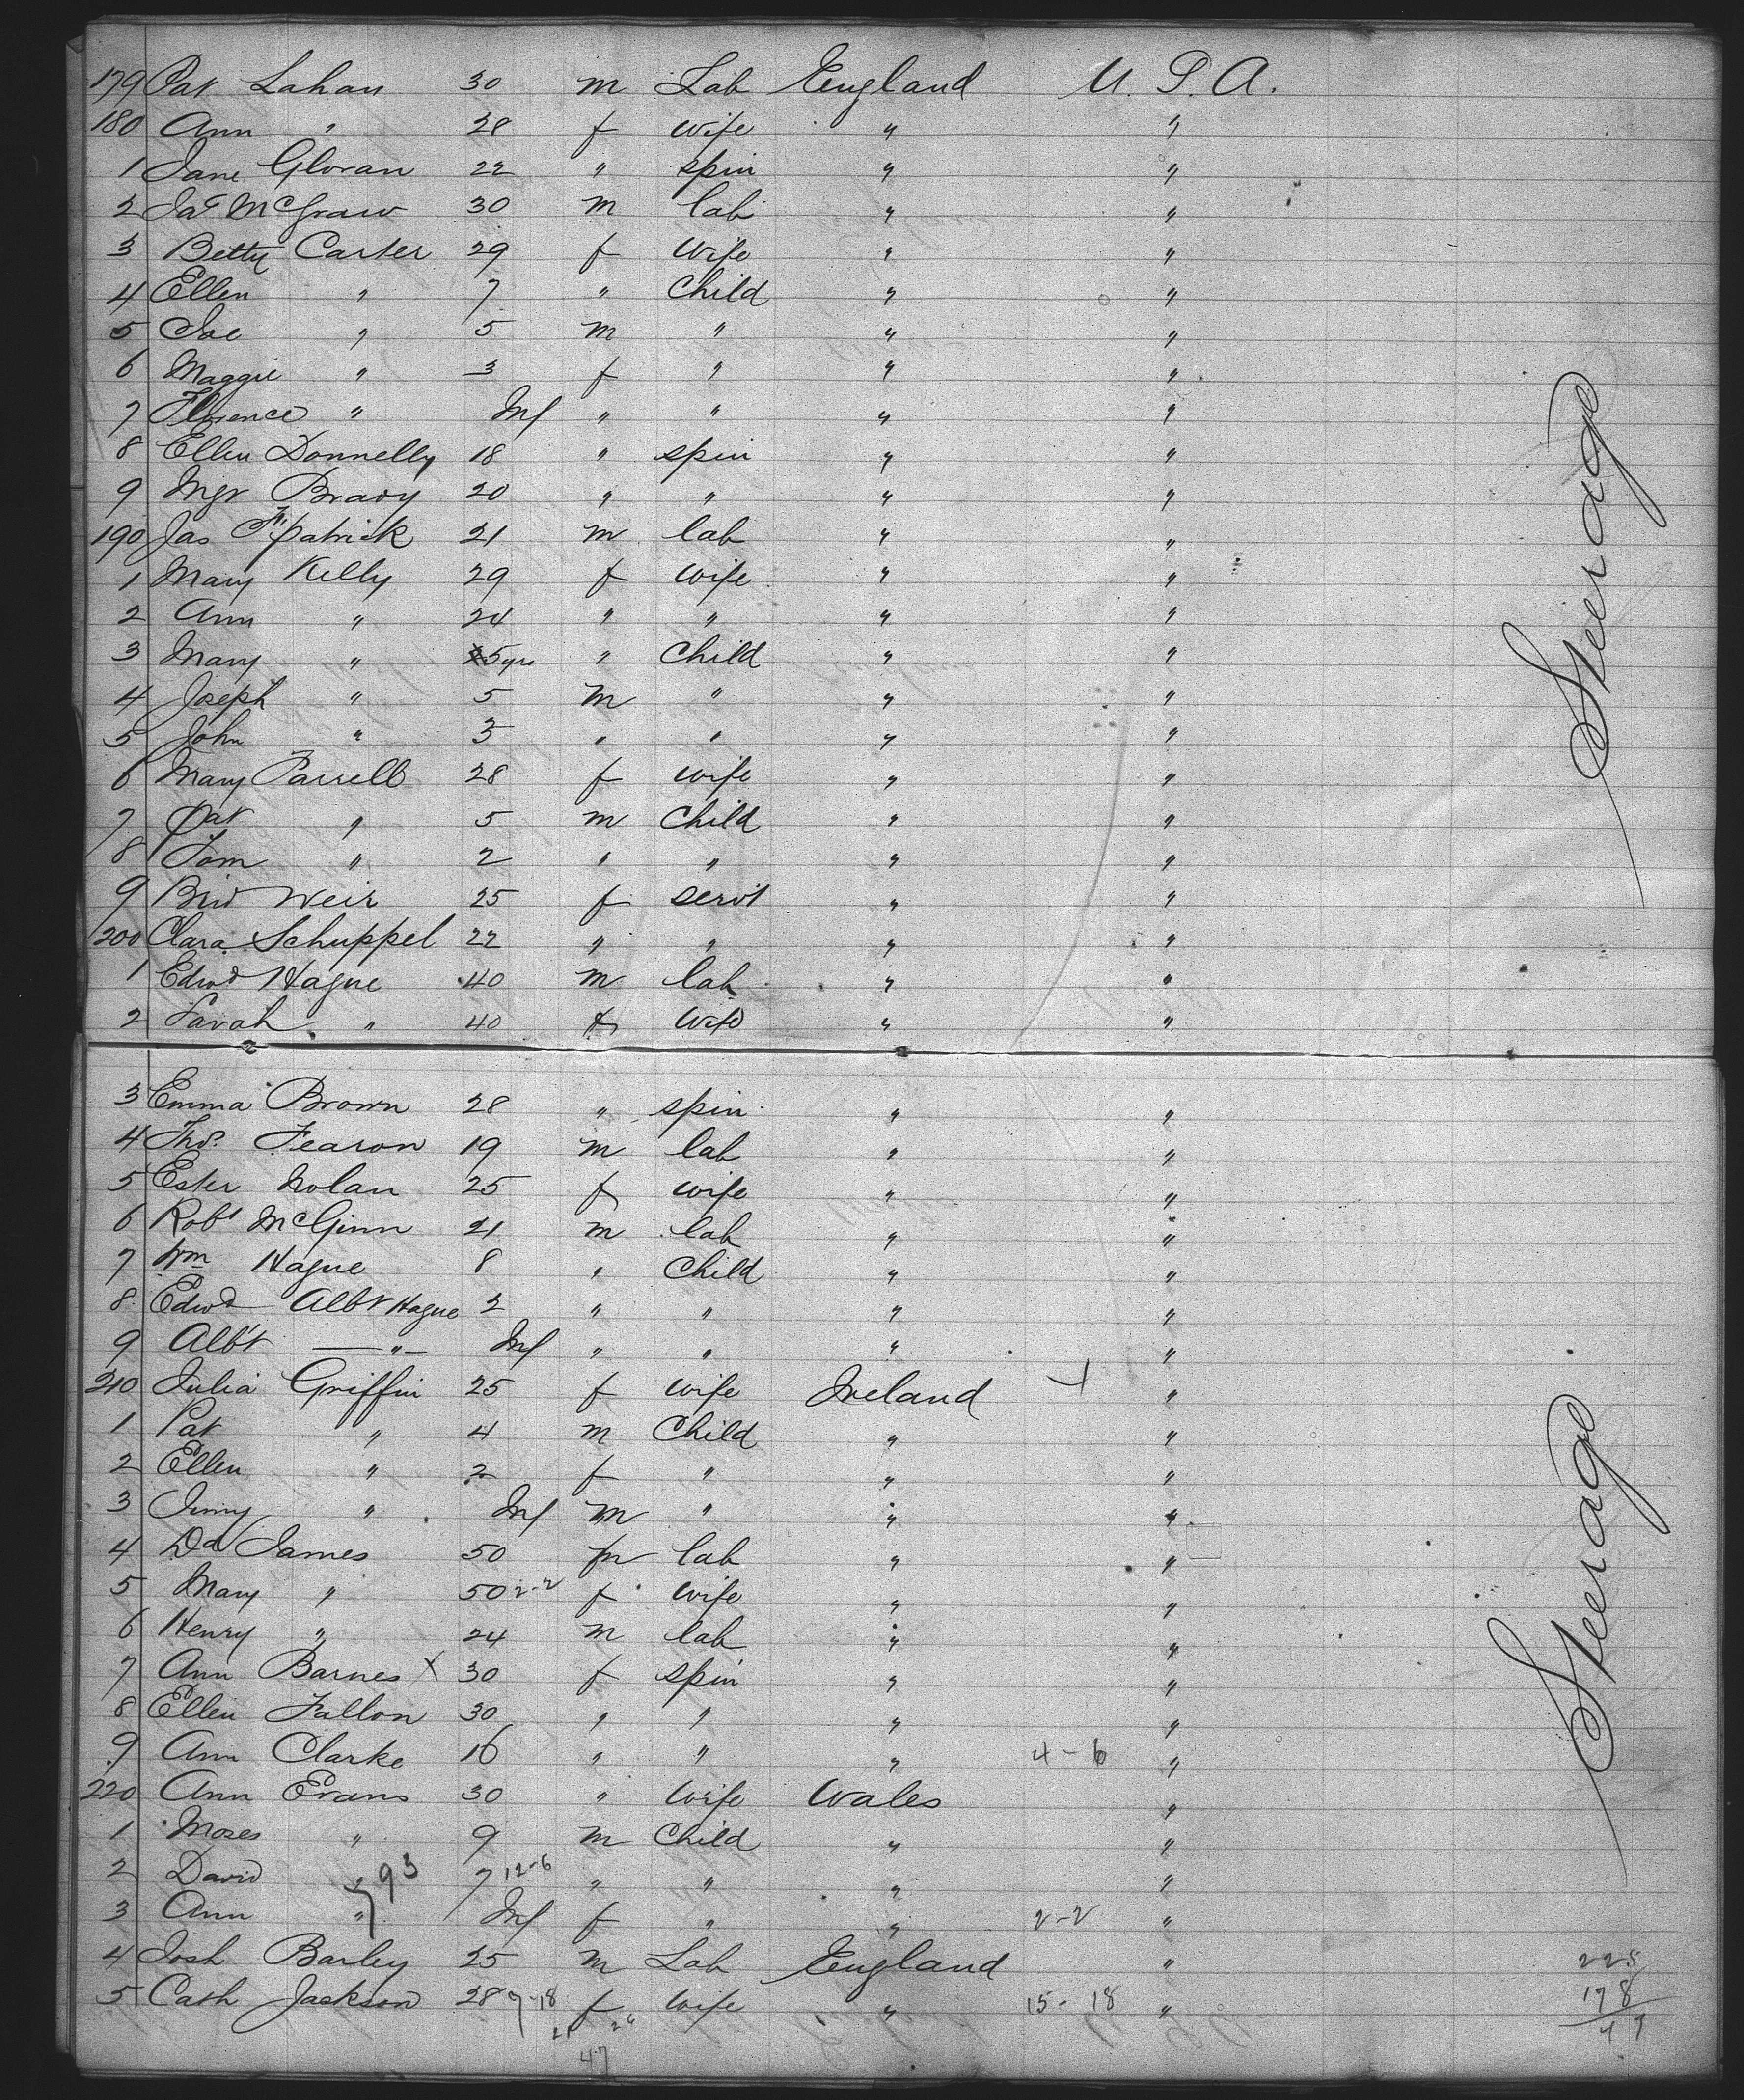 179 Pat Lahan 30 m Lab England U. S. A.
180 Ann " 28 f wife " "
1 Jane Gloran 22 " spin " "
2 Jas McGraw 30 m lab " "
3 Betty Carter 29 f Wife " "
4 Ellen " 7 " Child " "
5 Joe " 5 m " " "
6 Maggie " 3 f " " "
7 Florence " Inf " " " "
8 Ellen Donnelly 18 " spin " "
9 Mgt Brady 20 " " " "
190 Jas Fitzpatrick 21 m lab " "
1 Mary Kelly 29 f wife " "
2 Ann " 24 " " " "
3 Mary " 5 yrs " Child " "
4 Joseph " 5 m " " "
5 John " 3 " " " "
6 Mary Farrell 28 f wife " "
7 Pat " 5 m Child " "
8 Tom " 2 " " " "
9 Brid Weir 25 f servt " "
200 Clara Schuppel 22 " " " "
1 Edwd Hague 40 m lab " "
2 Sarah " 40 f Wife " "
Steerage
3 Emma Brown 28 " spin " "
4 Thos. Fearon 19 m lab " "
5 Ester Nolan 25 f wife " "
6 Robt McGinn 21 m lab " "
7 Wm Hague 8 " Child " "
8 Edwd Albt Hague 2 " " " "
9 Albt " Inf " " " "
210 Julia Griffin 25 f wife Ireland "
1 Pat " 4 m Child " "
2 Ellen " 2 f " " "
3 Jimy " Inf m " " "
4 Dd James 50 m lab " "
5 Mary " 50 2-2 f wife " "
6 Henry " 24 m lab " "
7 Ann Barnes X 30 f spin " "
8 Ellen Fallon 30 " " " "
9 Ann Clarke 16 " " " 4-6 "
220 Ann Evans 30 " Wife Wales "
1 Moses " 9 m Child " "
2 David " 93 7 12-6 " " " "
3 Ann " Inf f " " 2-2 "
4 Josh Barley 25 m Lab England "
5 Cath Jackson 28 9-18 f wife " 15-18 "
47
Steerage
225
178
47